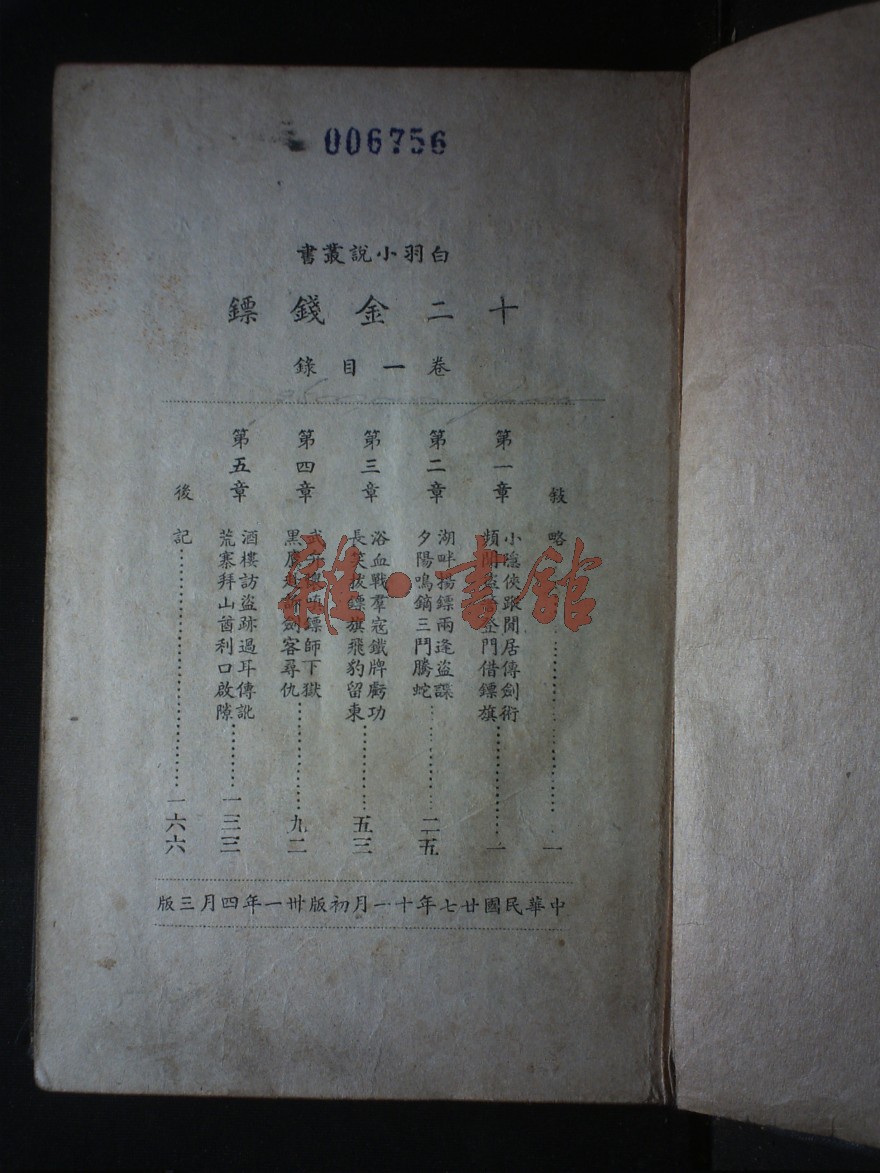 006756
白羽小說叢書
十二金錢鏢
卷一目錄
敍略……一
第一章
小隱俠蹤閒居傳劍術
頻聞盜警登門借鏢旗……一
第二章
湖畔揚鏢雨逢盜諜
夕陽鳴鏑三鬥騰蛇……二五
第三章
浴血戰羣寇鐵牌虧功
長笑拔鏢旗飛豹留柬……五三
第四章
鏢師下獄
黑鷹劍客尋仇……九二
第五章
酒樓訪盜跡過耳傳訛
荒寨拜山酋利口啟隙……一三三
後記……一六六
中華民國廿七年十一月初版卅一年四月三版
雜·書館